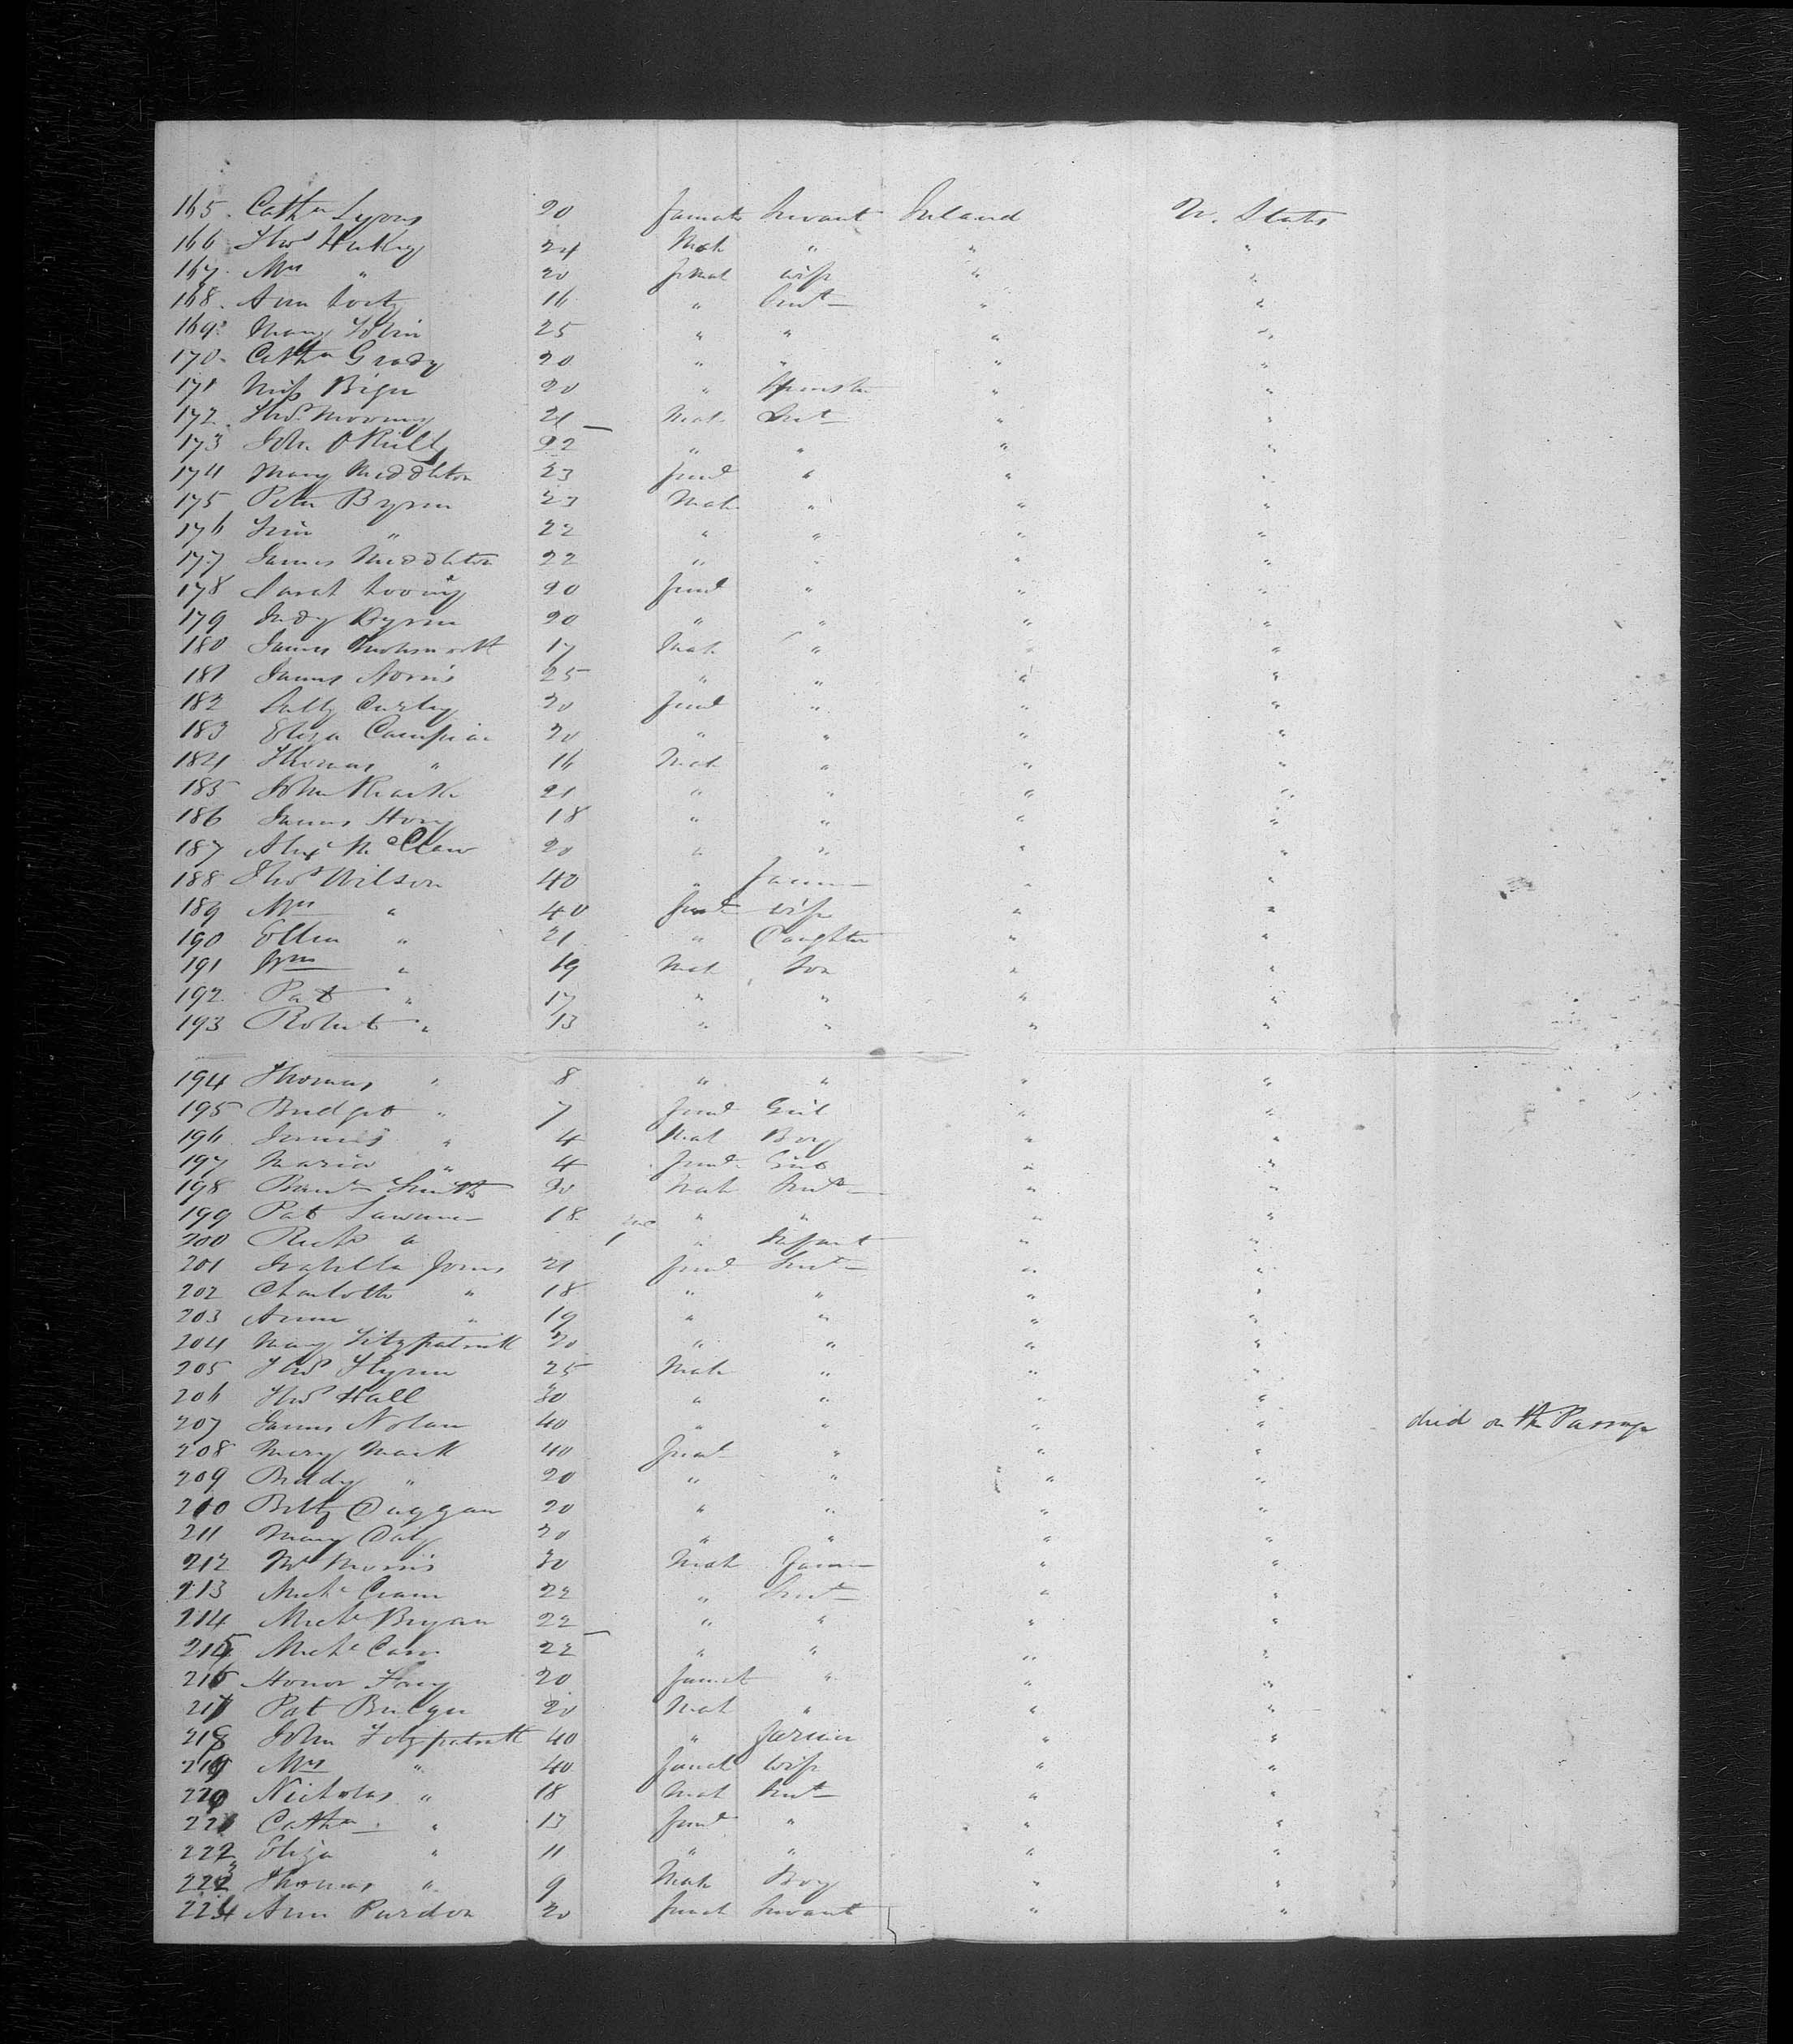 165. Cathn Lyons 20 Female Servant Ireland U. States
166 Thos 24 Male " " "
167. Mrs " 20 Femal wife " "
168. Ann 16 " Servt " "
169. Mary Tobin 25 " " " "
170. Cathn Grady 20 " " " "
171 Miss 20 " Spinster " "
172. Thos Mooney 21 Male Servt " "
173 John O'Reilly 22 " " " "
174 Mary Middleton 23 Femal " " "
175 Peter Byrne 23 Male " " "
176 " 22 " " " "
177 James Middleton 22 " " " "
178 Sarah 20 Femal " " "
179 Judy Byrne 20 " " " "
180 James 17 Male " " "
181 James Norris 25 " " " "
182 Curley 20 Femal " " "
183 Eliza Campion 20 " " " "
184 Thomas " 16 Male " " "
185 John 21 " " " "
186 James 18 " " " "
187 Alexr 20 " " " "
188 Thos Wilson 40 " Farmer " "
189 Mrs " 40 Femal wife " "
190 Ellen " 21 " Daughter " "
191 Wm " 19 Male Son " "
192. Pat " 17 " " " "
193 Robert " 13 " " " "
194 Thomas " 8 " " " "
195 Bridget " 7 Femal Girl " "
196 James " 4 Male Boy " "
197 Maria " 4 Femal Girl " "
198 Smith 20 Male Servt " "
199 Pat 18 " " " "
200 Richd " " Infant " "
201 Isabella Jones 21 Femal Servt " "
202 Charlotte " 18 " " " "
203 Anne " 19 " " " "
204 Mary Fitzpatrick 20 " " " "
205 Thos Flynn 25 Male " " "
206 Thos Hall 30 " " " "
207 James Nolan 40 " " " " died on the Passage
208 Mary Mack 40 Femal " " "
209 Biddy " 20 " " " "
210 Betty Duggan 20 " " " "
211 Mary Daly 20 " " " "
212 Morris 30 Male Farmer " "
213 Michl 22 " Servt " "
214 Michl Bryan 22 " " " "
215 Michl 22 " " " "
216 Honor 20 Femal " " "
217 Pat 20 Male " " "
218 John Fitzpatrick 40 " Farmer " "
219 Mrs " 40 Femal Wife " "
220 Nicholas " 18 Male Servt " "
221 Cathn " 13 Femal " " "
222 Eliza " 11 " " " "
223 Thomas " 9 Male Boy " "
224 Ann Purdon 20 Femal Servant " "